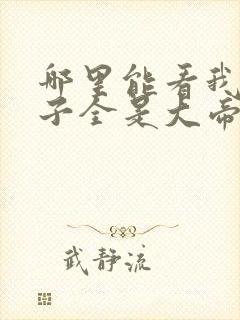 哪里能看我
子全是大帝
武静流